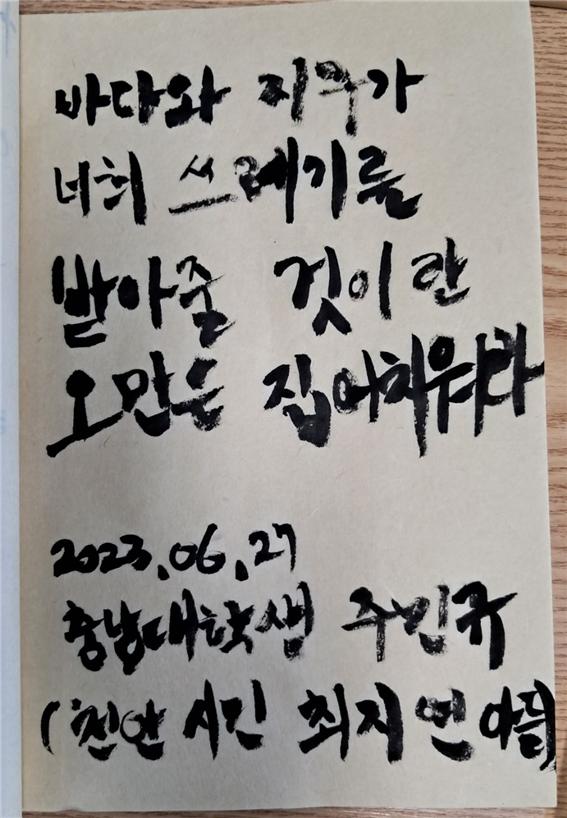 바다와 지구가
너희 쓰레기를
받아줄 것이란
오만은 집어치워라
2023.06.27
충남대학생 주빈규
(천안시민 최지연 아들)